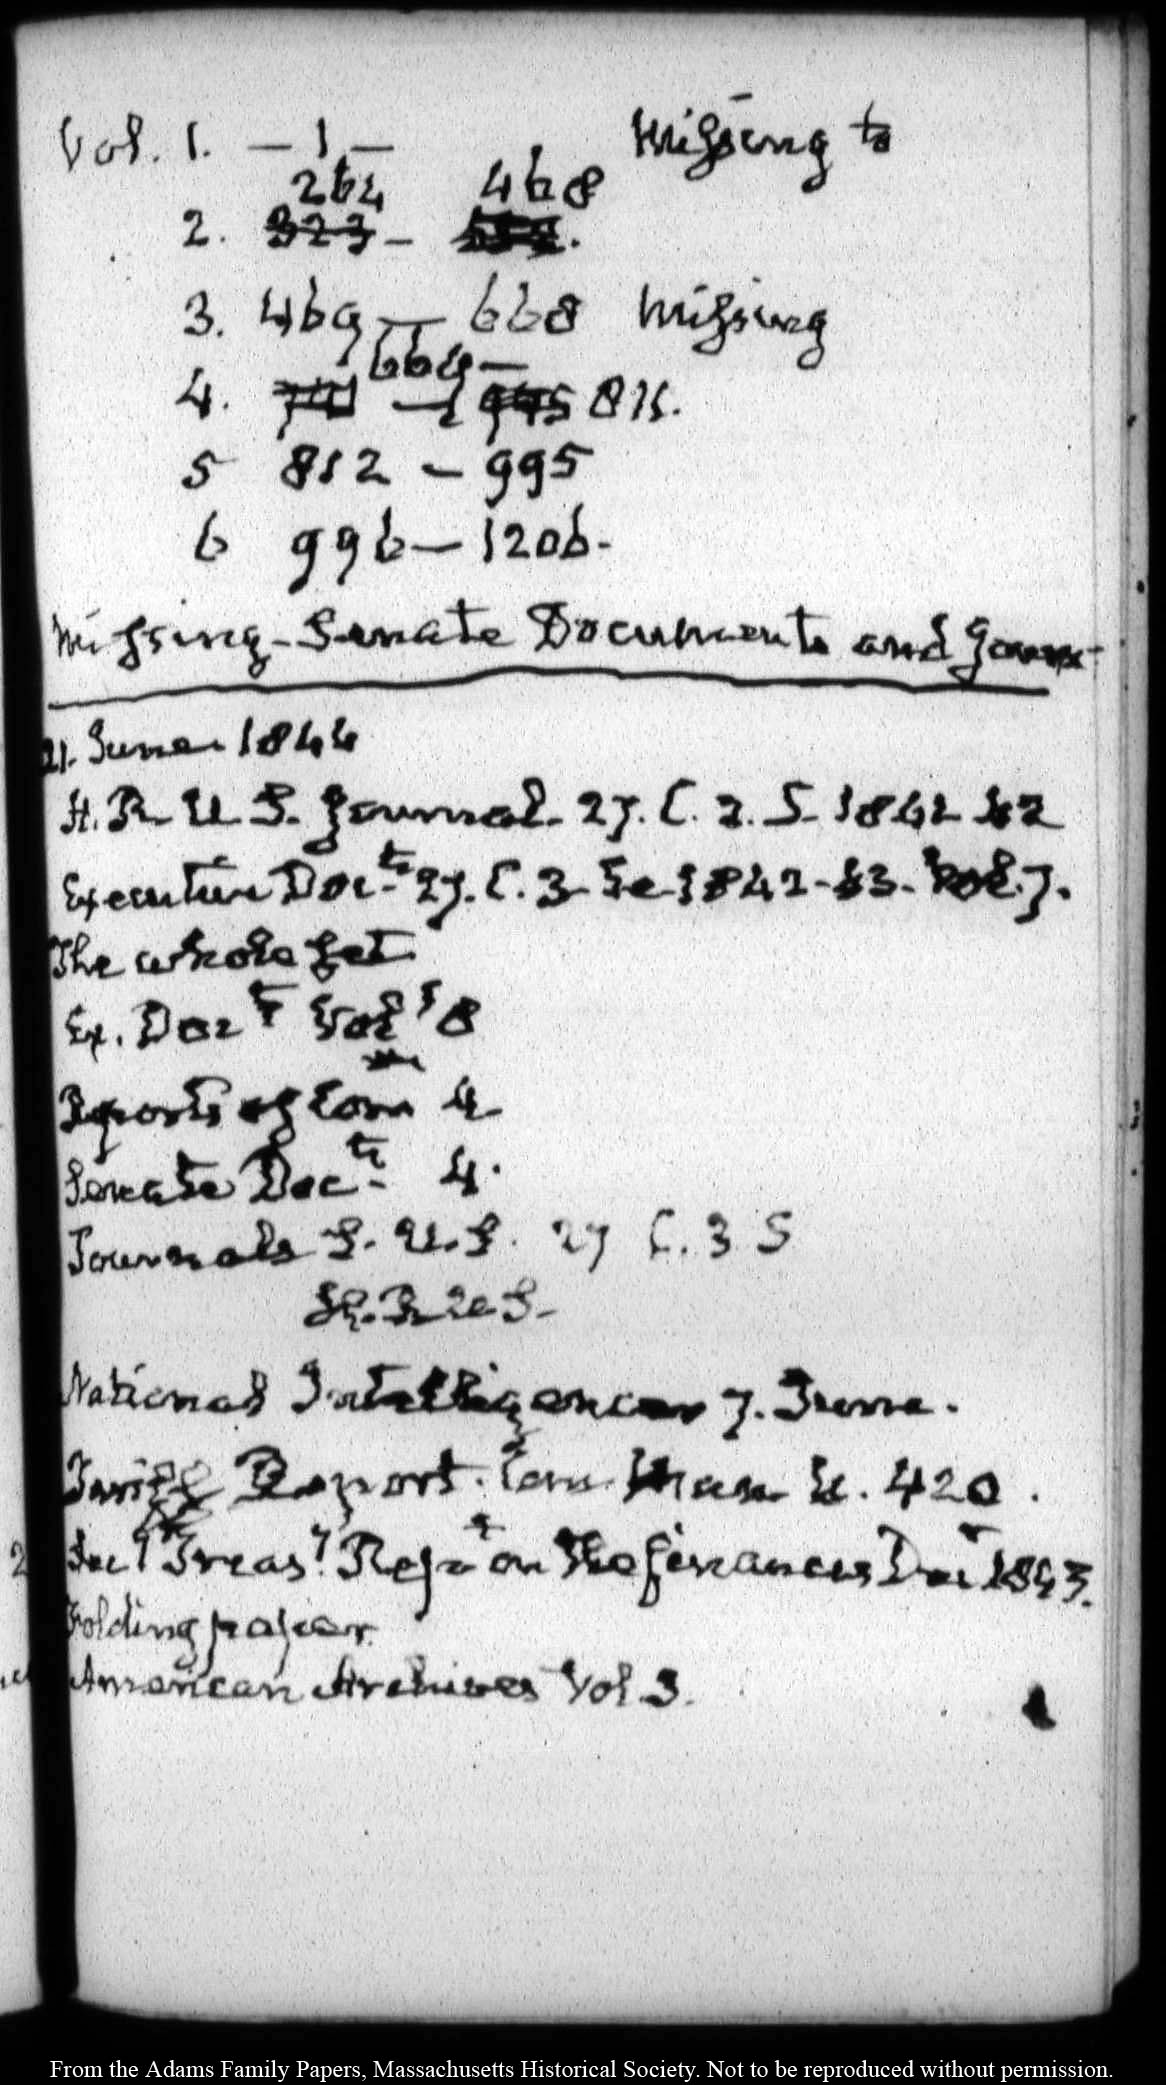 Vol. 1. — 1 — Missing to
264 468
2. 323 —
3. 469 — 668 Missing
669 —
4. — 811.
5 812 — 995
6 996 — 1206.
Missing - Senate Documents and Journ
21. June 1844
H. R. U. S. Journal. 27. C. 2. S. 1841 42
Executive Doc.ts 27. C. 3 Se 1842-43. Vol. 7.
The whole set
Ex. Docts Vols 8
Reports of Com 4
Senate Docts 4.
Journals S. U. S. 27 C. 3 S
H. R. U. S.
National Intelligencer 7. June.
Tariff Report. Com 420.
Secy Treasy Rept on the finances Decr 1843.
Folding paper
American Archives Vol 3.
From the Adams Family Papers, Massachusetts Historical Society. Not to be reproduced without permission.